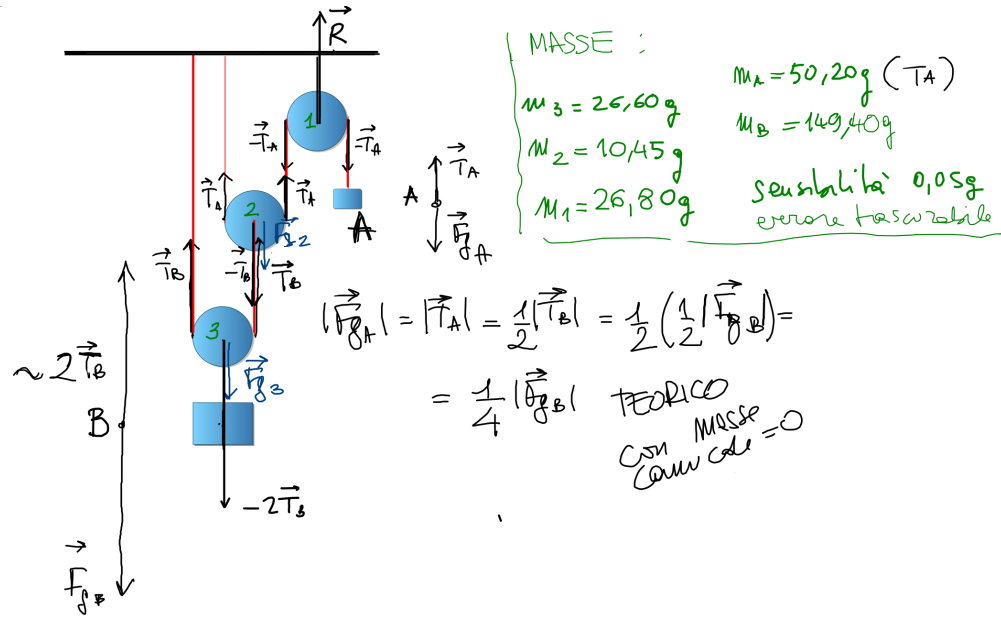 R⃗
1
-T⃗A
-T⃗A
T⃗A
T⃗A
2
F⃗g2
A
A
T⃗A
F⃗gA
T⃗B
-T⃗B
T⃗B
3
F⃗g3
~2T⃗B
B
-2T⃗B
F⃗gB
MASSE :
m3 = 26,60g
m2 = 10,45 g
m1 = 26,80g
mA = 50,20g (TA)
mB = 149,40g
sensibilità 0,05g
errore trascurabile
|F⃗gA| = |T⃗A| = 1/2 |T⃗B| = 1/2 (1/2 |F⃗gB|) =
= 1/4 |F⃗gB| TEORICO
con masse
=0